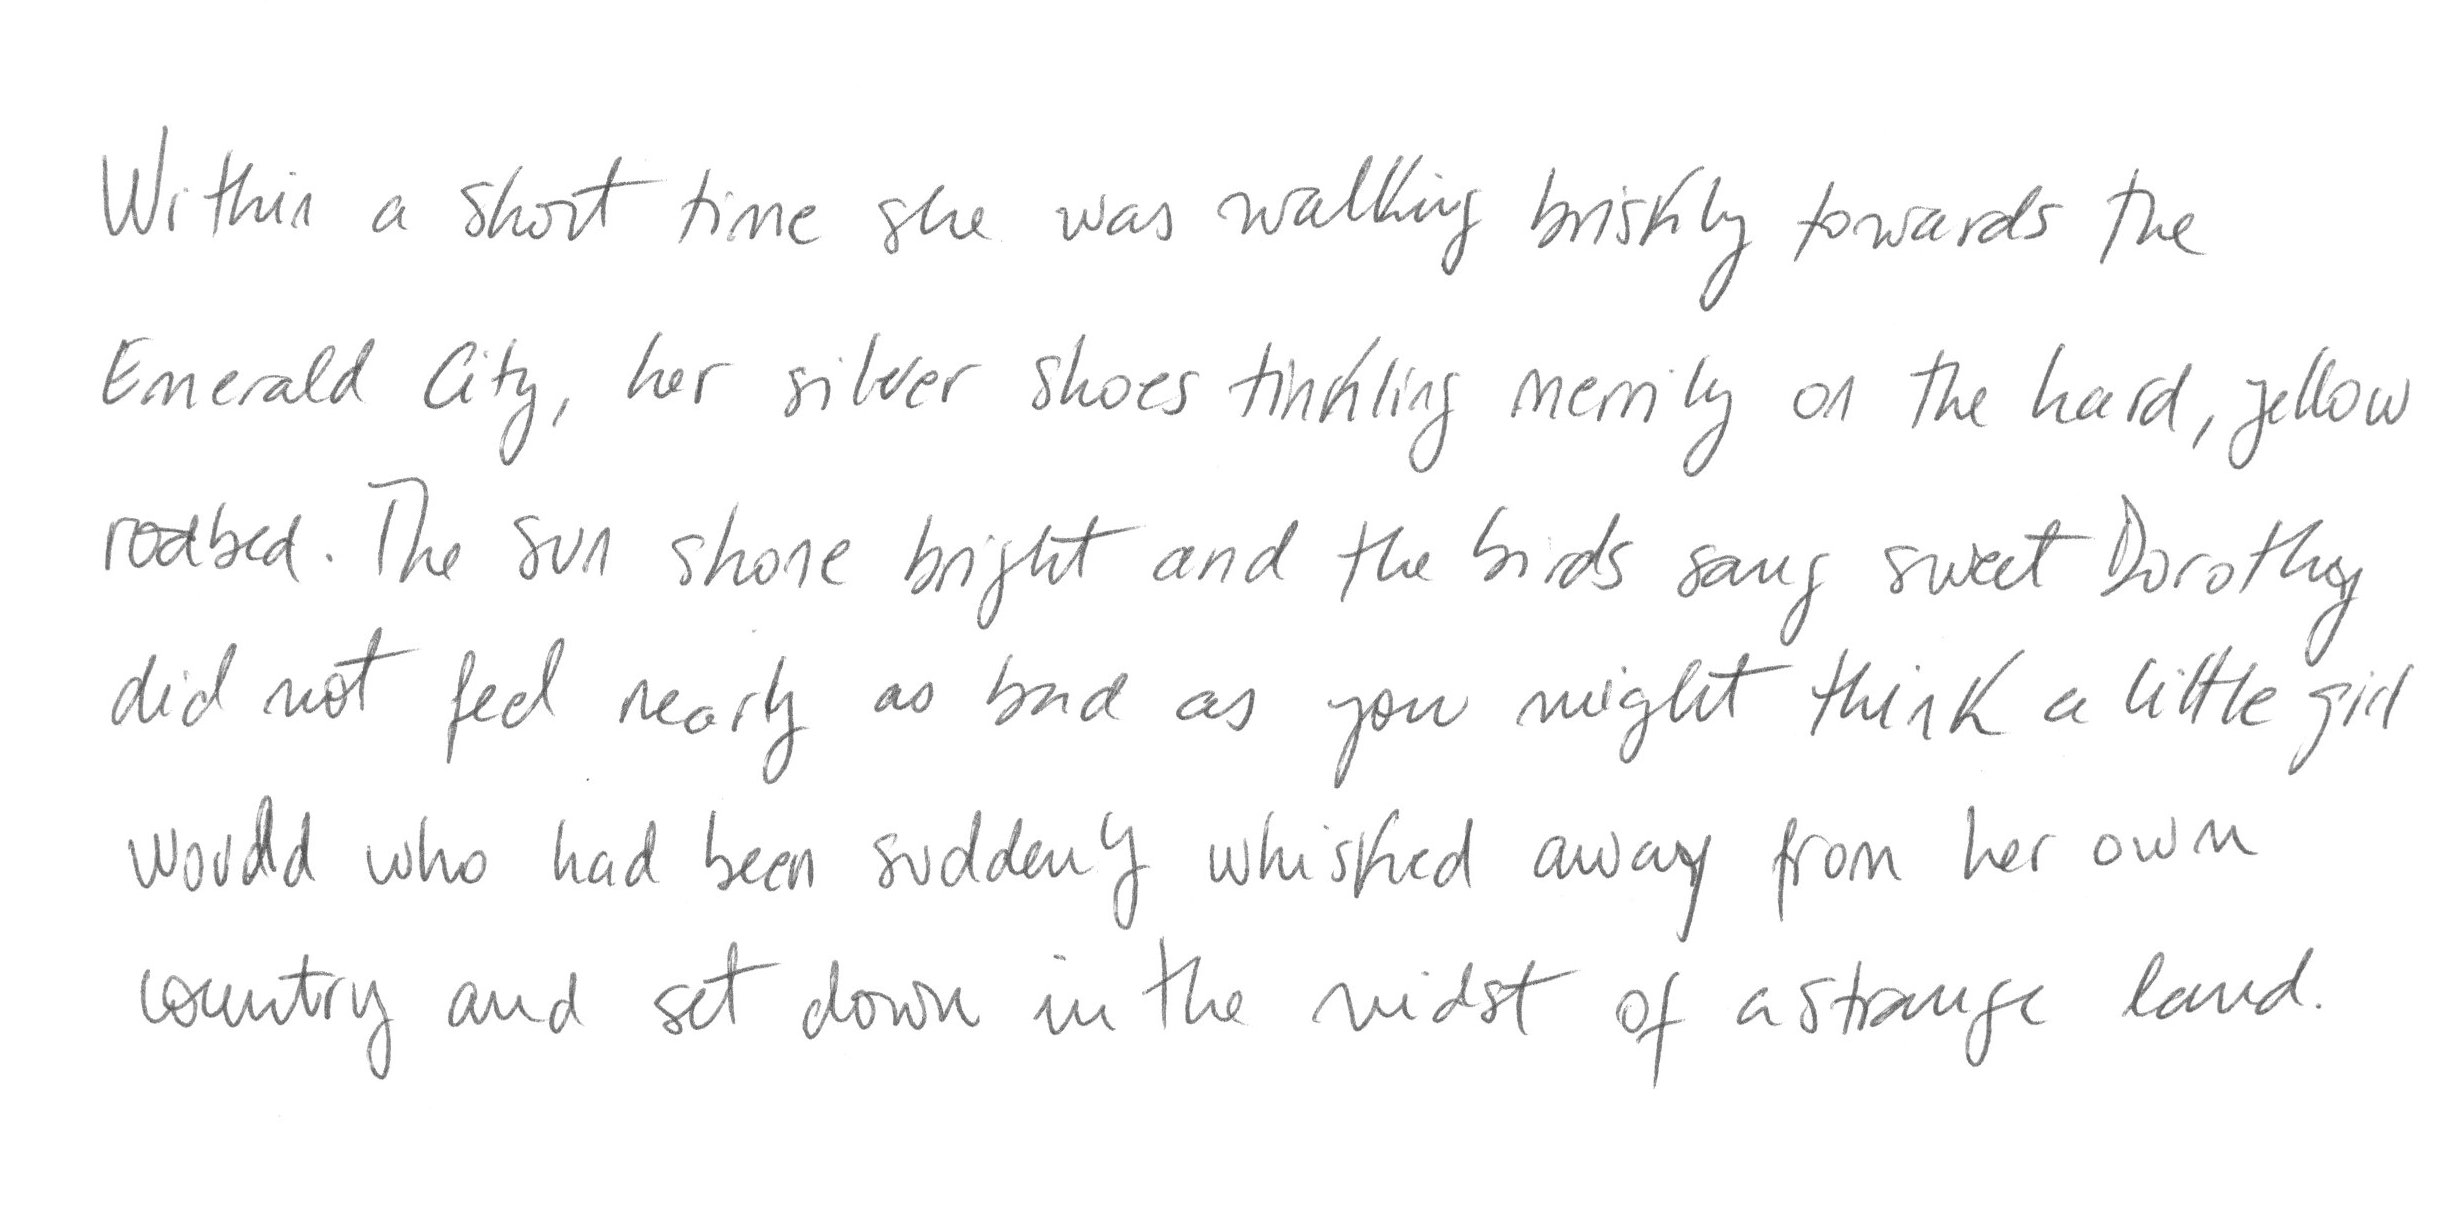 Within a short time she was walking briskly towards the
Emerald City, her silver shoes tinkling merrily on the hard, yellow
rodbed. The sun shone bright and the birds sang sweet Dorothy
did not feel nearly as bad as you might think a little girl
would who had been suddenly whisked away from her own
country and set down in the midst of a strange land.